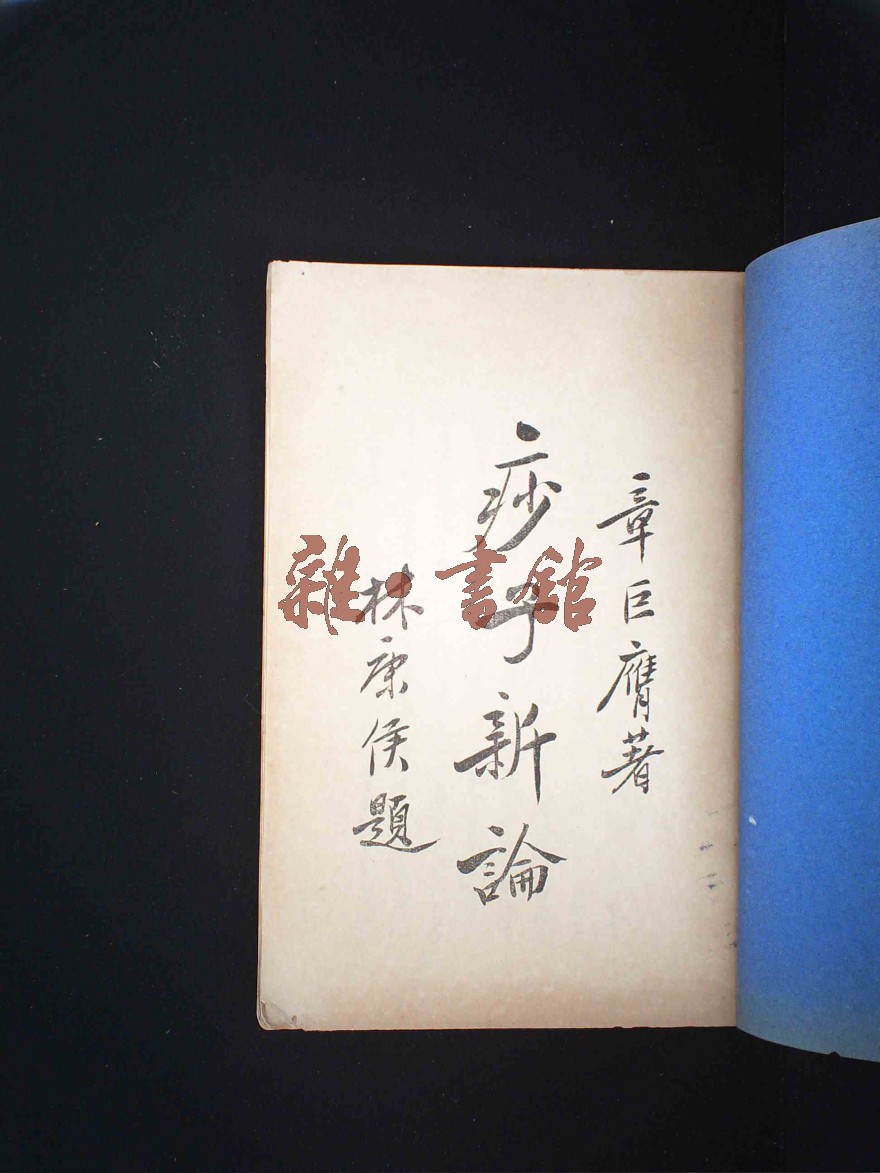 章巨膺著
痧子新論
林康侯題
雜·書館